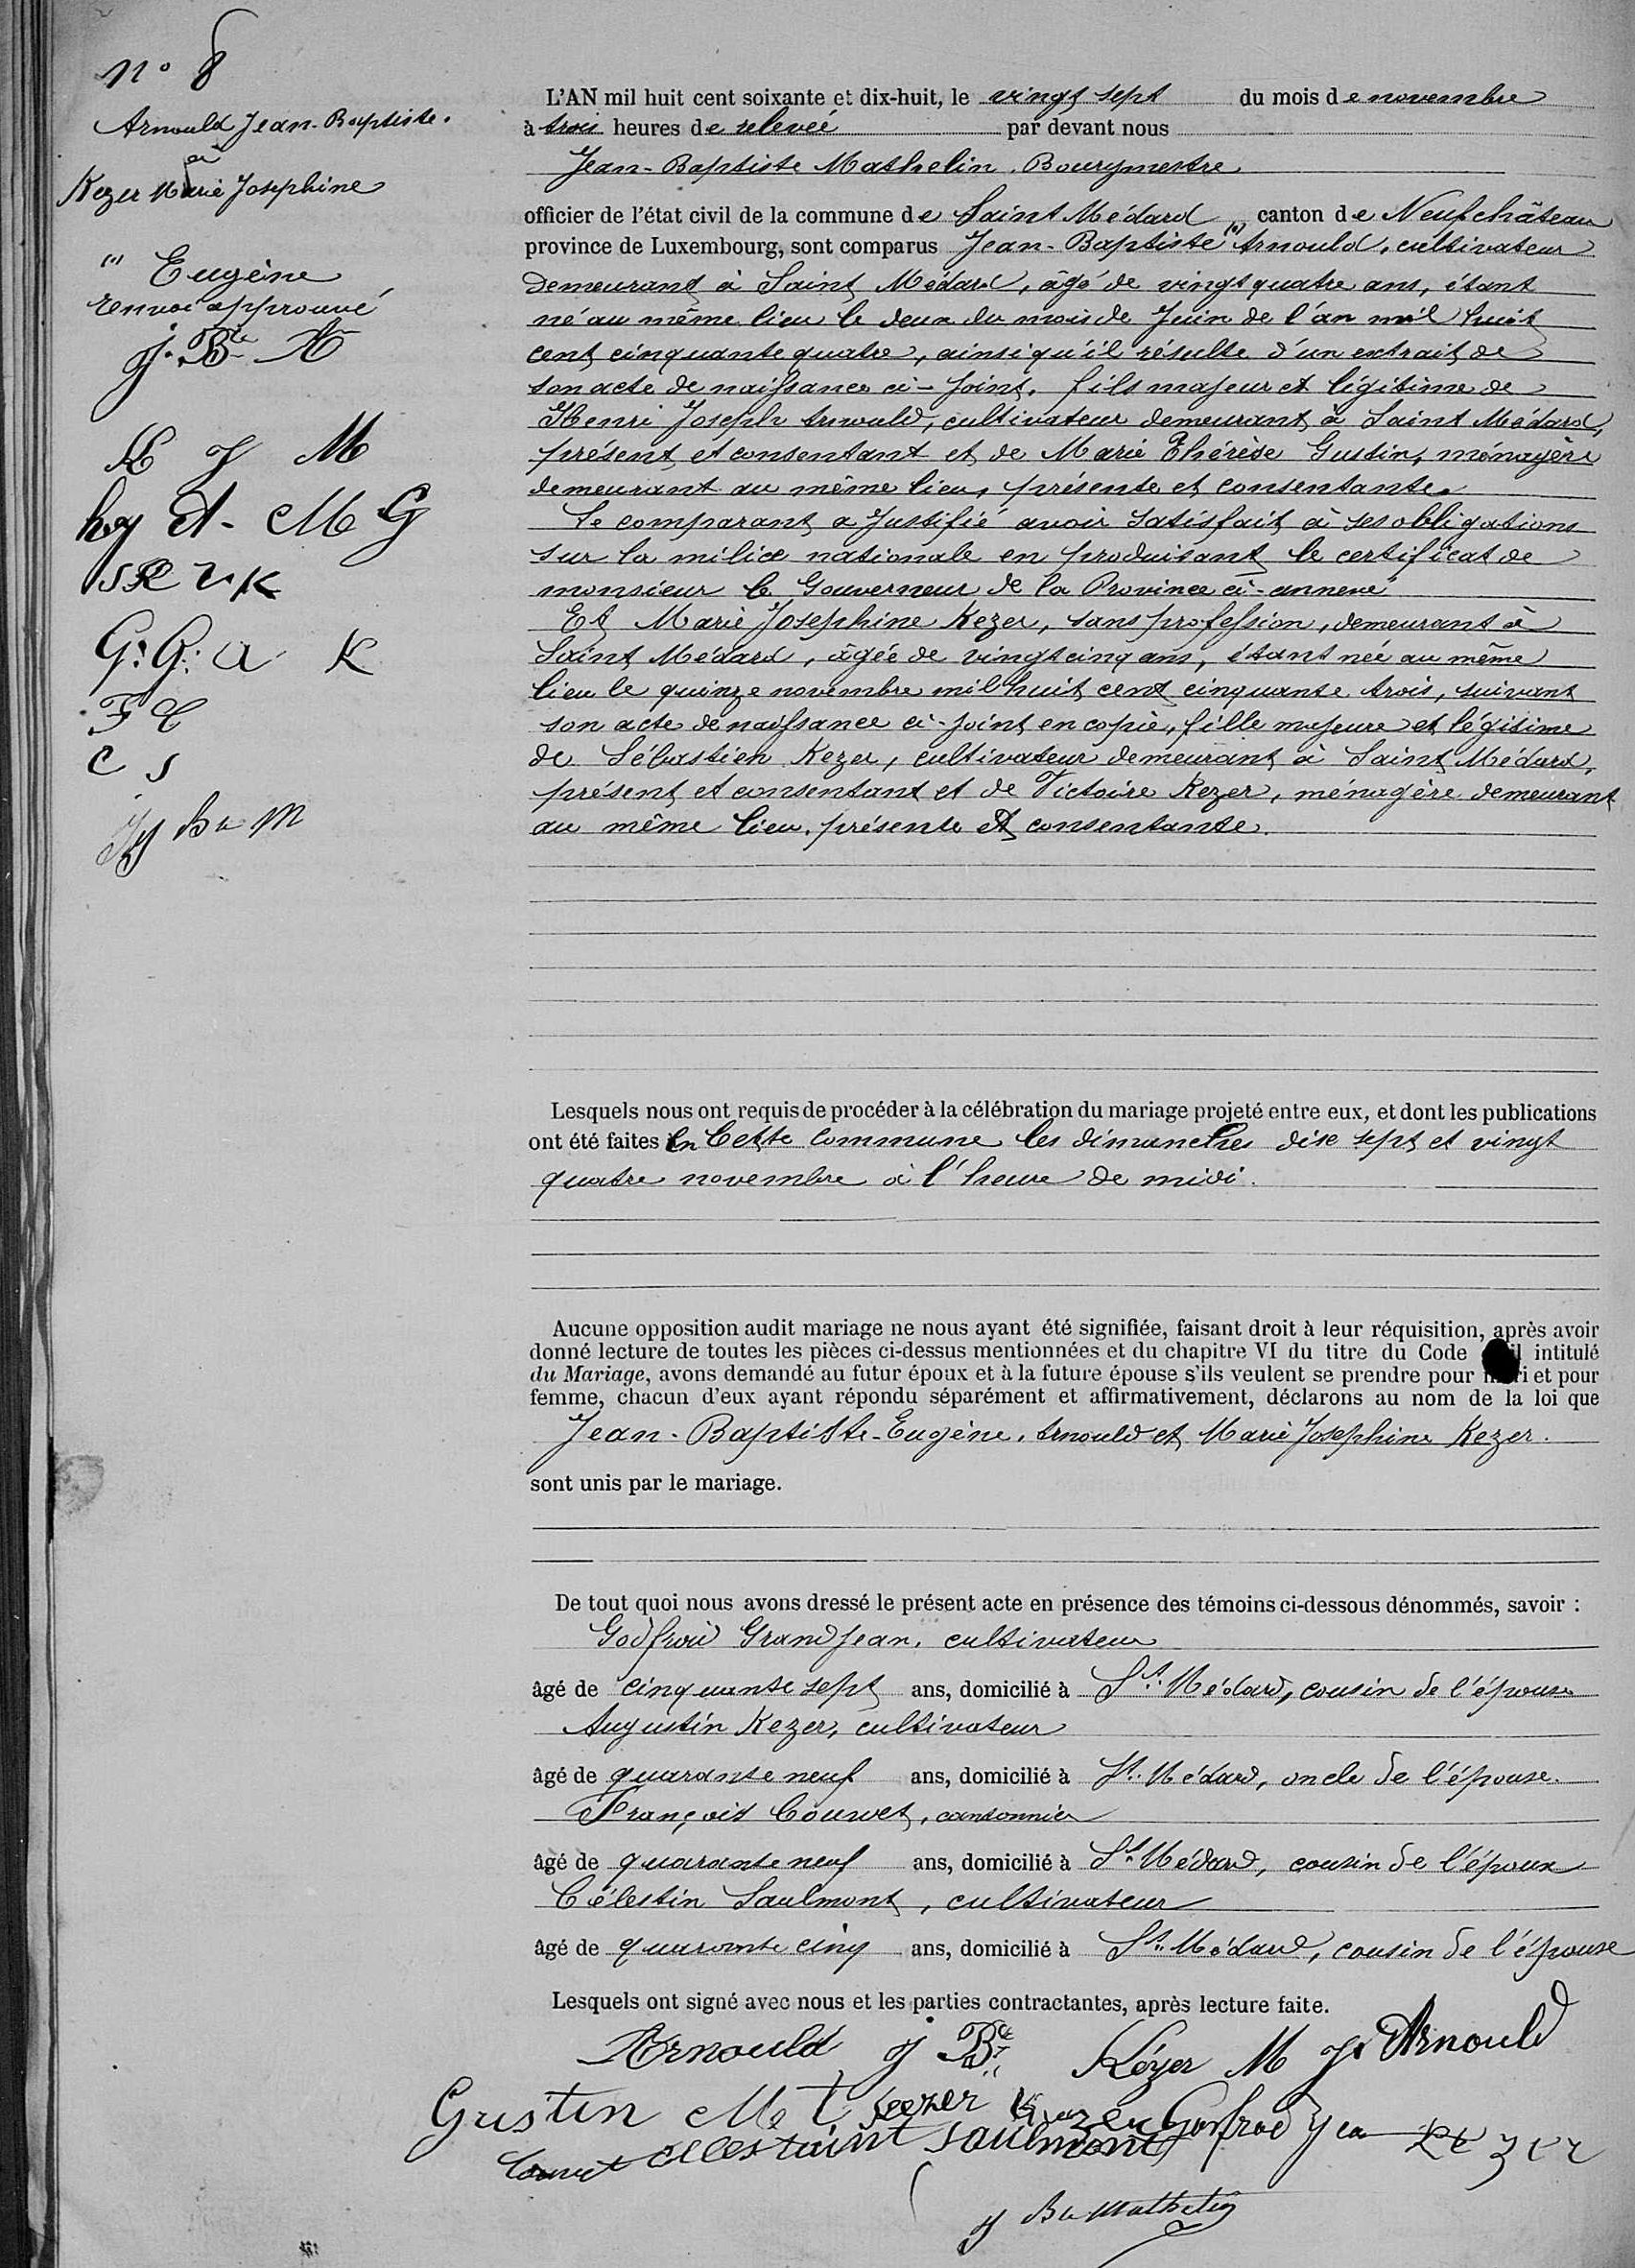 n° 8
Arnould Jean-Baptiste.
à
Kezer Marie Josephine
(1) Eugène
renvoi approuvé
J. Bte A
K J M
hy A - M G
S K V K
G: G: A K
F C
C S
J Bte M
L'AN mil huit cent soixante et dix-huit, le vingt sept du mois de novembre
à trois heures de relevée par devant nous
Jean-Baptiste Mathelin, Bourgmestre
officier de l'état civil de la commune de Saint Médard, canton de Neufchâteau
province de Luxembourg, sont comparus Jean-Baptiste (1) Arnould, cultivateur
demeurant à Saint Médard, âgé de vingt quatre ans, étant
né au même lieu le deux du mois de Juin de l'an mil huit
cent cinquante quatre, ainsi qu'il résulte d'un extrait de
son acte de naissance ci-joint, fils majeur et légitime de
Henri Joseph Arnould, cultivateur demeurant à Saint Médard,
présent et consentant et de Marie Thérèse Gustin, ménagère
demeurant au même lieu, présente et consentante.
Le comparant a justifié avoir satisfait à ses obligations
sur la milice nationale en produisant le certificat de
monsieur le Gouverneur de la Province ci-annexé
Et Marie Josephine Kezer, sans profession, demeurant à
Saint Médard, âgée de vingt cinq ans, étant née au même
lieu le quinze novembre mil huit cent cinquante trois, suivant
son acte de naissance ci-joint en copie, fille majeure et légitime
de Sébastien Kezer, cultivateur demeurant à Saint Médard,
présent et consentant et de Victoire Kezer, ménagère demeurant
au même lieu, présente et consentante.
Lesquels nous ont requis de procéder à la célébration du mariage projeté entre eux, et dont les publications
ont été faites en Cette commune les dimanches dix sept et vingt
quatre novembre à l'heure de midi.
Aucune opposition audit mariage ne nous ayant été signifiée, faisant droit à leur réquisition, après avoir
donné lecture de toutes les pièces ci-dessus mentionnées et du chapitre VI du titre du Code intitulé
du Mariage, avons demandé au futur époux et à la future épouse s'ils veulent se prendre pour mari et pour
femme, chacun d'eux ayant répondu séparément et affirmativement, déclarons au nom de la loi que
Jean-Baptiste-Eugène, Arnould et Marie Josephine Kezer.
sont unis par le mariage.
De tout quoi nous avons dressé le présent acte en présence des témoins ci-dessous dénommés, savoir :
Godfroid Grandjean, cultivateur
âgé de cinquante sept ans, domicilié à St. Médard, cousin de l'épouse
Augustin Kezer, cultivateur
âgé de quarante neuf ans, domicilié à St. Médard, oncle de l'épouse.
François Couvet, cantonnier
âgé de quarante neuf ans, domicilié à St Médard, cousin de l'époux
Célestin Saulmont, cultivateur
âgé de quarante cinq ans, domicilié à St. Médard, cousin de l'épouse
Lesquels ont signé avec nous et les parties contractantes, après lecture faite.
Arnould J Bte Kézer M J Arnould
Gustin M t Keezer Kezer Gonfroid Jea Kezer
Couvet Celestaint Saulmont
J Bte Mathelin